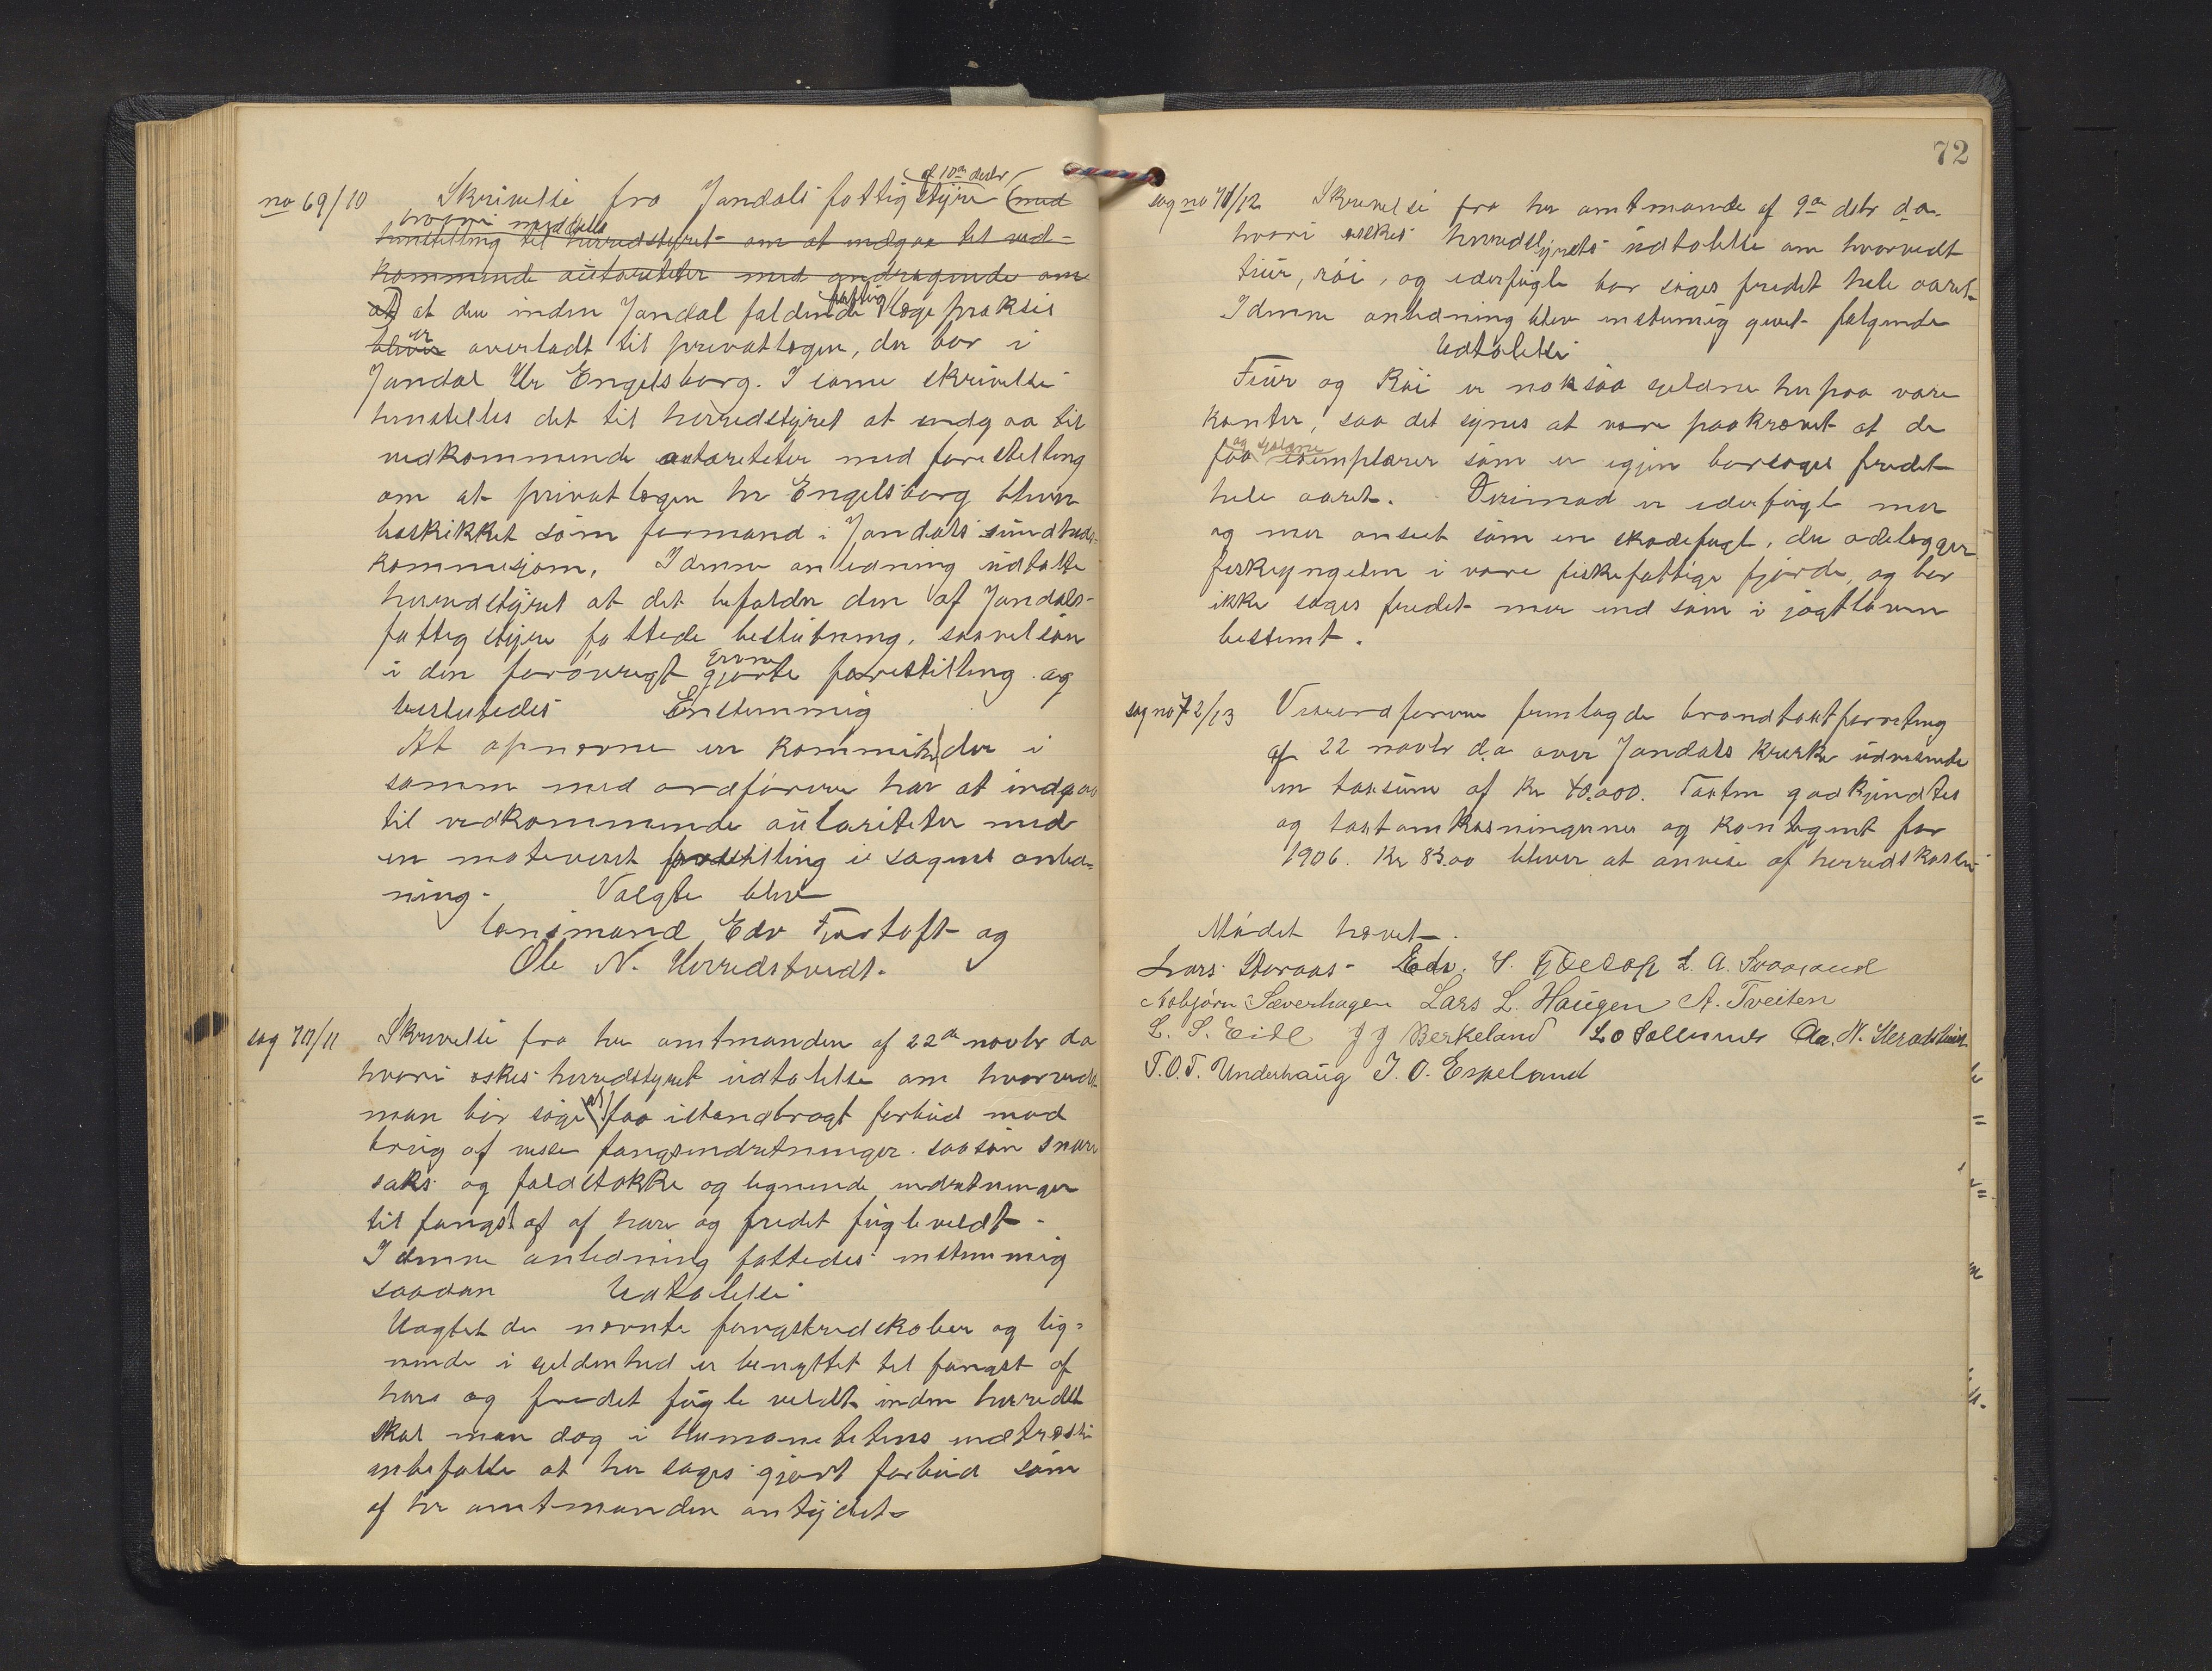 af 10de decbr
no 69/10 Skrivelse fra Jondals fattigstyre (med
hvori meddeles
henstilling til herredstyret om at indgaa til ved=
kommende autoriteter med andragende om
at) at den inden Jondal faldende fattig lægepraksis
bliver er overladt til privatlægen, der bor i
Jondal Hr Engelsborg. I same skrivelse
henstilles det til herredstyret at indgaa til
vedkommende autoriteter med forestilling
om at privatlægen hr Engelsborg bliver
beskikket som formand i Jondals sundheds=
kommisjon. I denne anledning udtalte
herredstyret at det befalder den af Jondals
fattigstyre fattede beslutning, saavel som
i den forøvrigt grvne gjorte forestilling og
besluttedes Enstemmig
At opnevne en kommite, der i
samme med ordføreren har at indgaa
til vedkommende autoriteter med
en motiveret forestilling i sagens anled=
ning. Valgte blev
lensmand Edv Fjærtoft og
Ole N. Herredstvedt.
sag 70/11 Skrivelse fra hr amtmanden af 22de novbr da
hvori æskes herredstyret udtalelse om hvorvidt
man bør søge at faa istandbragt forbud mod
brug af visse fangsindretninger saasom snare
saks og faldstokke og lignende indretninger
til fangst af af hare og fredet fuglevildt.
I denne anledning fattedes enstemmig
saadan Udtalelse
Uagtet de nevnte fangstredskaber og lig=
nende i sjeldenhed er benyttet til fangst af
hare og fredet fugle vildt inden herredet
skal man dog i Humanitetens indtresse
anbefalle at her søges gjort forbud som
af hr amtmanden antydet.
72
sag no 71/12 Skrivelse fra hr amtmande af 9de debr da.
hvori æskes herredstyrets udtalelse om hvorvedt
tiur, röi, og ederfugle bør søges fredet hele aaret.
I denne anledning blev enstemmig givet følgende
Udtalelse
Tiur og Röi er noksaa sjeldne her paa vore
kanter, saa det synes at være paakrævet at de
faa og sjeldne exemplarer som er igjen bør søges fredet
hele aaret. Derimod er ederfugle mer
og mer anseet som en skadefugl, der ødelægger
fiskeyngelen i vore fiskefattige fjorde, og bør
ikke søges fredet mer end som i jagtloven
bestemt.
sag no 72/13 Viseordføreren fremlagde brandtaxtforretning
af 22 novbr d.a over Jondals kirke udvisende
en taxsum af kr 40.000. Taxten godkjendtes
og taxtomkosningerne og kontegent for
1906. Kr 83.00 bliver at anvise af herredskassen
Mødet hævet.
Lars Storaas Edv. S. Fjærtoft L. A. Svaasand
Asbjørn Sæverhagen Lars L. Haugen A. Tveiten
L. S. Eide J J Berkeland L O Sollesnes Aa. N. Heradstveit
T.O.T. Underhaug J. O. Espeland